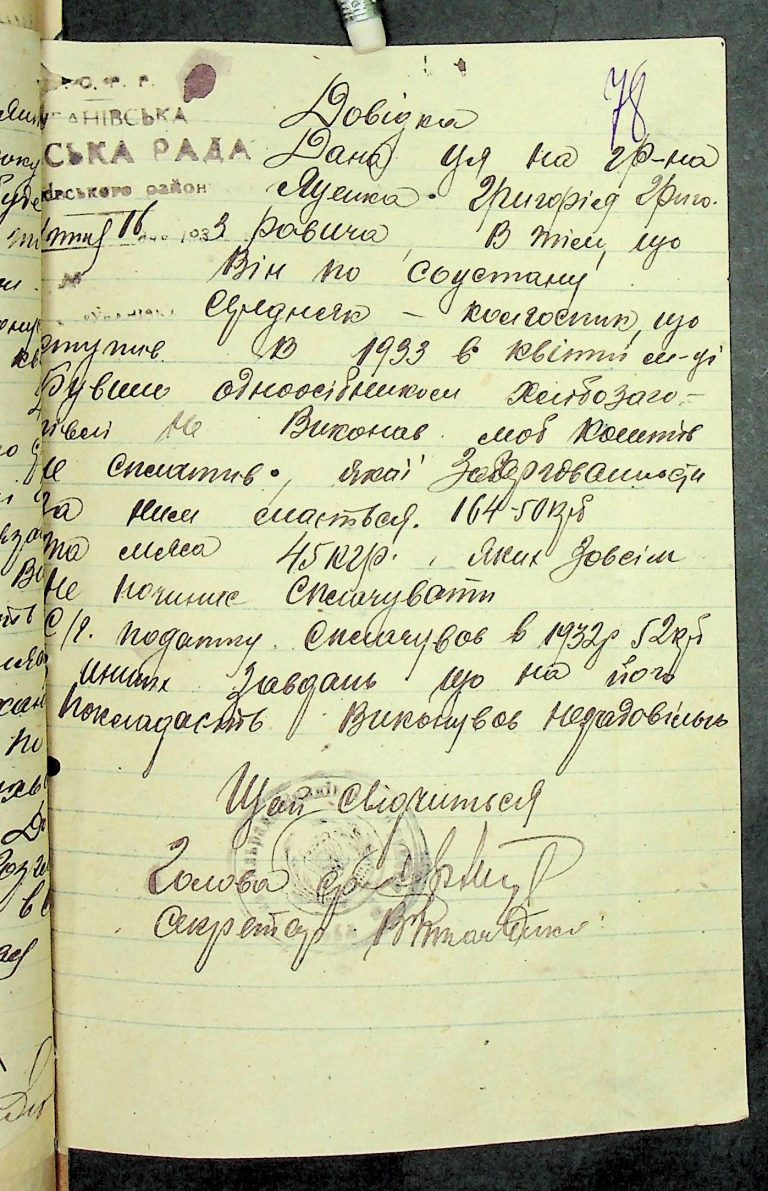 78
С. Ф. Р.
АНІВСЬКА
СЬКА РАДА
ківського район
16 193 3
№
Довідка
Дана ця на гр-на
Яценка Григорія Григо-
ровича В тім, що
Він по соустану
Середняк – колгоспник, що
ступив В 1933 в квітні м-ці
Бувши одноосібником хлібозаго-
тівлі не Виконав моб коштів
не сплатив, якої Заборгованности
За ним мається. 164-50 крб
та мяса 45 кгр., яких Зовсім
Не почина Сплачувати
С/г. податку Сплачував в 1932р 52 крб
инших Завдань що на його
покладають Виконував незадовільно
Що й свідчиться
Голова с/р
Секретар